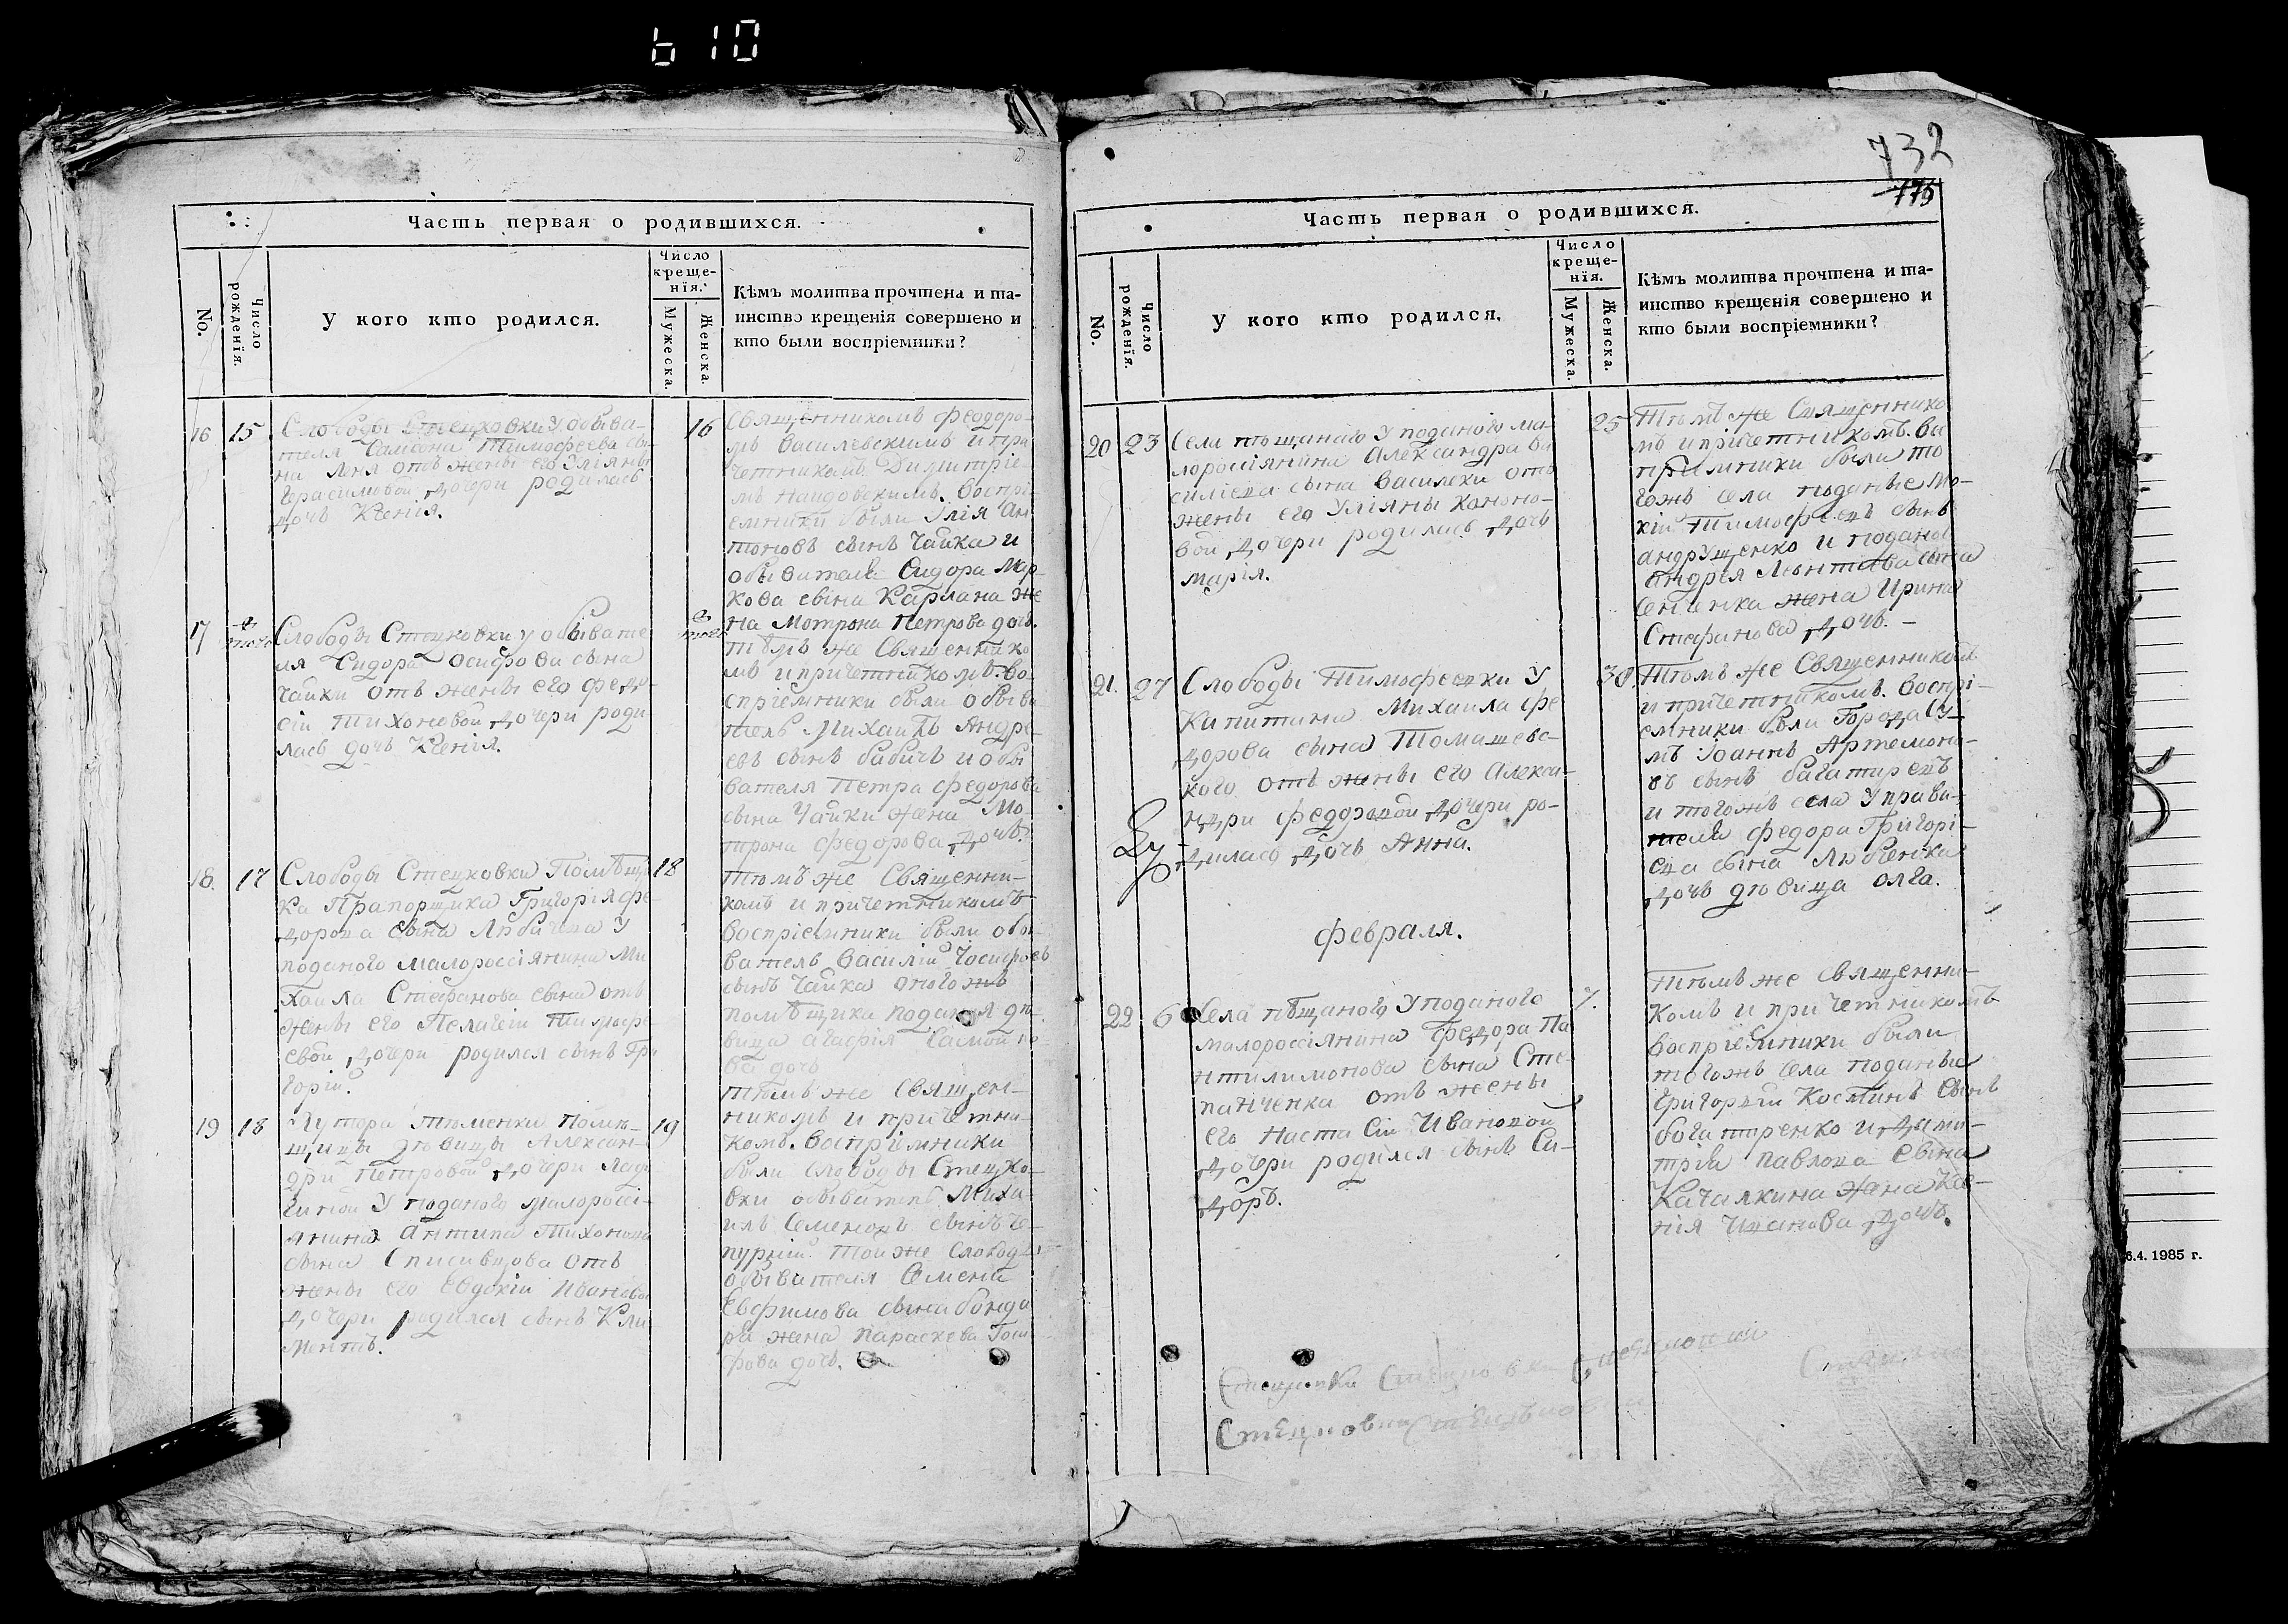 610
Часть первая о родившихся.
No.
Число рожденія.
У кого кто родился.
Число креще-нія.
Мужеска.
Женска.
Кѣмъ молитва прочтена и та-
инство крещенія совершено и
кто были воспріемники?
16
15
Слободы Стецковки У обыва-
теля Самсона Тимофеева сы-
на от жены его Уліяны
Герасимовой дочери родилась
дочь Ксенія.
16
Священникомъ Феодоро-
мъ Василевскимъ и при-
четникомъ Димитріе-
мъ воспрі-
емники были Ілія Ан
тоновъ сынъ Чайка и
обывателя Сидора Мар-
кова сына жe
на Мотрона Петрова дочь.
17
тогож
Слободы Стецковки у обывате
ля Сидора Осифова сына
Чайки отъ жены его Федо-
сіи Тихоновой дочери роди-
лась дочь Ксенія.
тогож
тѣмъ же Священнико
мъ и причетникомъ. Во-
спріемники были обыва
тель Михаилъ Андре-
евъ сынъ Бабичъ и обы
вателя Петра Федорова
сына Чайки жена Мо-
трона Федорова дочь.
18.
17
Слободы Стецковки Помѣщи
ка Прапорщика Григорія Фе
дорова сына Любичева У
поданого малороссіянина Ми
хаила Стефанова сына отъ
жены его Пелагеіи Тимофе
евой дочери родился сынъ Гри
горій.
18
тѣмъ же Священни-
комъ и причетникомъ
воспріемники были обы-
ватель Василій Іосифовъ
сынъ Чайка оного жъ
помѣщика поданая дѣ-
вица Агафія
ва дочь
19
18
Хутора помѣ-
щицы девицы Алексан-
дри Петровой дочери
У поданого малороссі-
янина Антипа Тихонова
сына отъ
жены его Евдокіи Ивановой
дочери родился сынъ Кли-
ментъ.
19
тѣмъ же Священ-
никомъ и причетни-
комъ. Воспріемники
были слободы Стецко-
вки обыватель Миха-
илъ Семеновъ сынъ Че-
пурній той же слободы
обывателя Семена
Евфимова сына Бонда
ря жена Параскева
дочь.
732
775
Часть первая о родившихся.
No.
Число рожденія.
У кого кто родился.
Число креще-нія.
Мужеска.
Женска.
Кѣмъ молитва прочтена и та-
инство крещенія совершено и
кто были воспріемники?
20
23
Села пѣщаного У поданого ма-
лороссіянина Александра Ва
силіева сына Василехи отъ
жены его Уліяны Кононо-
вой дочери родилась дочь
Марія.
25
Тѣмъ же Священнико
мъ и причетникомъ. Во
спріемники были то
гожъ села поданые Мо-
кій Тимофеевъ сынъ
Андрущенко и поданого
Андрея Леонтіева сына
жена Ирина
Стефанова дочь.
21.
27
Слободы Тимофеевки У
Капитана Михаила Фе
дорова сына Томашевс-
кого отъ жены его Алекса-
ндри Федоровой дочери ро-
дилась дочь Анна.
30.
Тѣмъ же Священникомъ
и причетникомъ. Воспрі-
емники были Города Су-
мъ Іоаннъ Артемоно-
въ сынъ Багатиревъ
и тогожъ села Управи-
теля Федора Григорі-
ева сына Любченка
дочь девица Олга.
Февраля.
22
6
Села пѣщаного У поданого
малороссіянина Федора Па
нтилимонова сына Сте-
панченка отъ жены
его Настасіи Ивановой
дочери родился сынъ Си-
доръ.
7.
Тѣмъ же Священни-
комъ и причетникомъ
воспріемники были
тогожъ села поданые
Григорій Костинъ сынъ
Богатиренко и Дими-
трія Павлова сына
Качалкина жена Ксе-
нія Иванова дочь.
Стецковки
Стецковки
6.4. 1985 г.